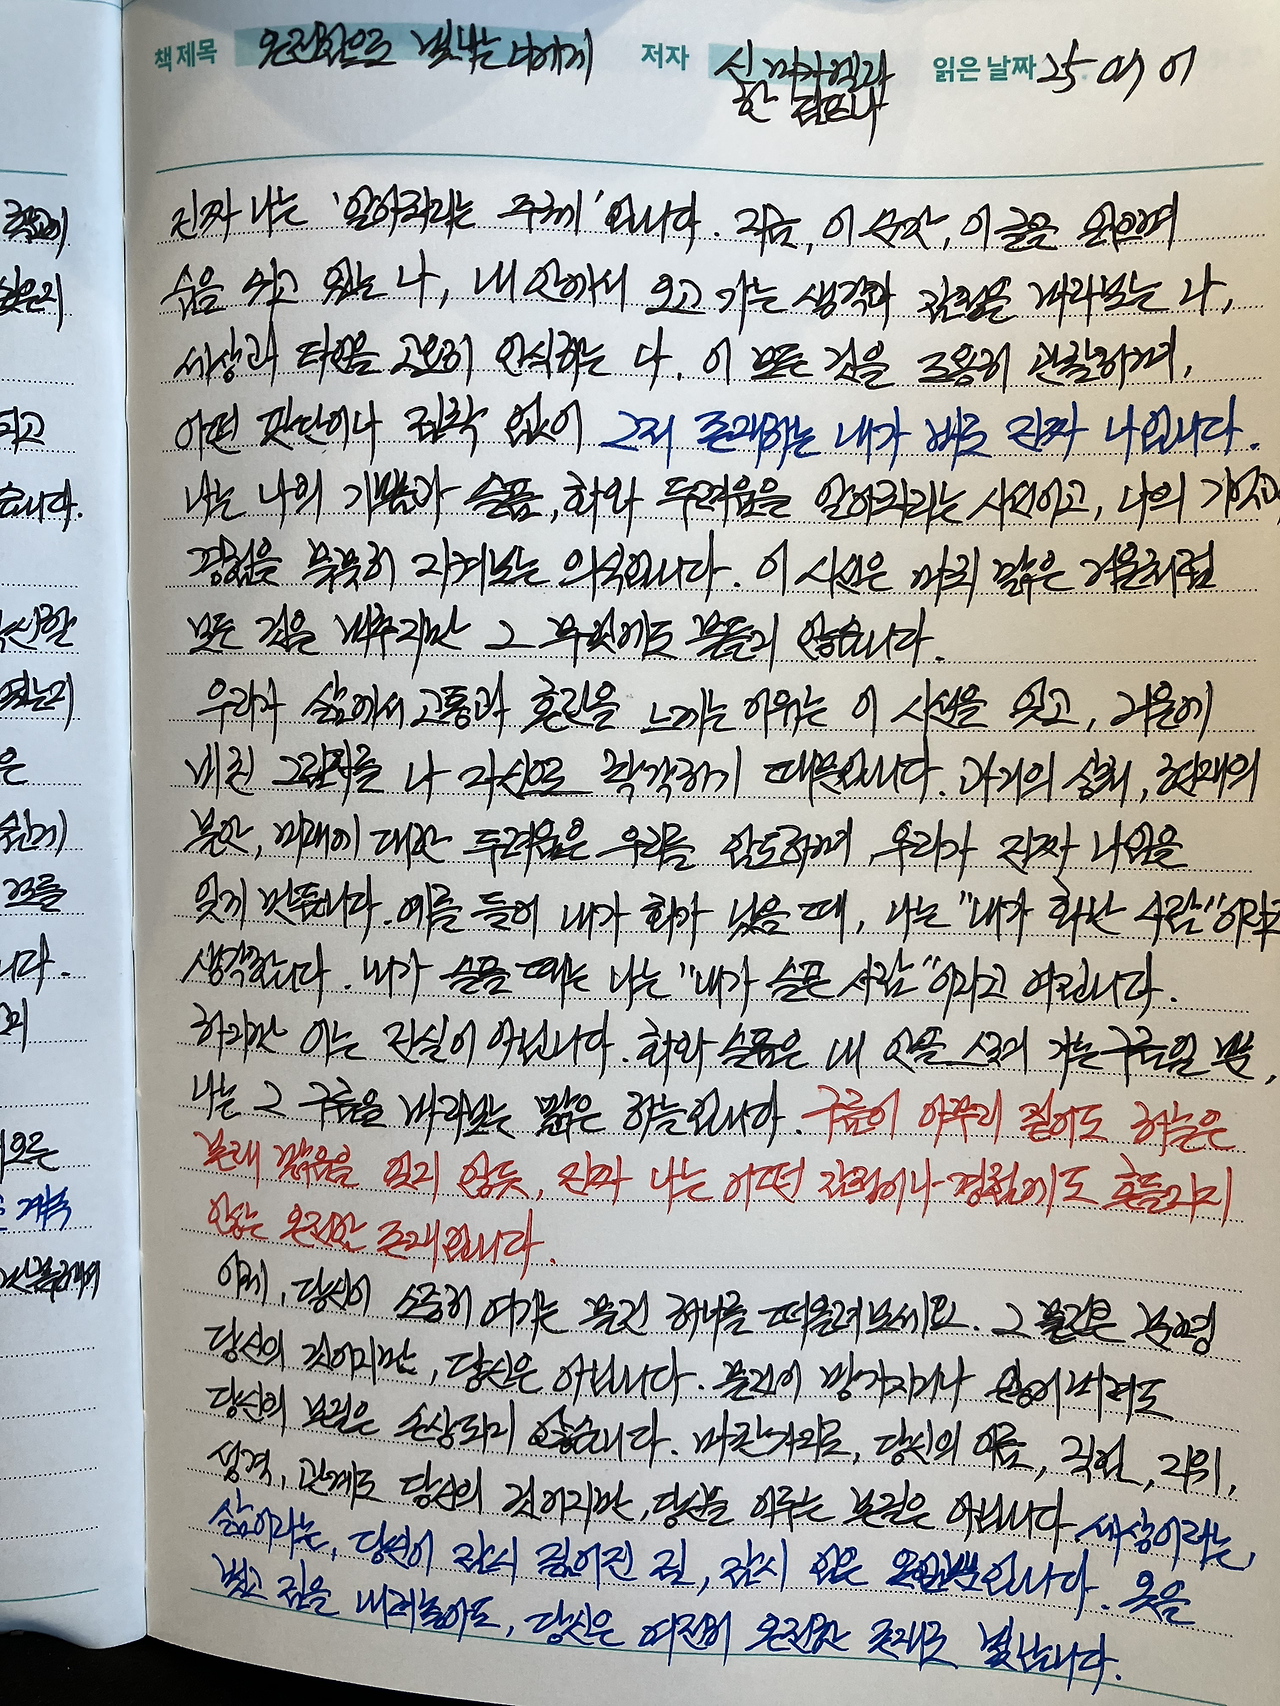 책 제목 온전함으로 빛나는 너에게 저자 신 미카엘라 한 읽은 날짜 25 09 01
진짜 나는 '알아차리는 주체' 입니다. 지금, 이 순간, 이 글을 읽으며
숨을 쉬고 있는 나, 내 안에서 오고 가는 생각과 감정을 바라보는 나,
세상과 타인을 고요히 인식하는 나. 이 모든 것을 조용히 관찰하며,
어떤 판단이나 집착 없이 그저 존재하는 내가 바로 진짜 나입니다.
나는 나의 기쁨과 슬픔, 화와 두려움을 알아차리는 시선이고, 나의 기억과
경험을 묵묵히 지켜보는 의식입니다. 이 시선은 마치 맑은 거울처럼
모든 것을 비추지만 그 무엇에도 물들지 않습니다.
우리가 삶에서 고통과 혼란을 느끼는 이유는 이 시선을 잊고, 거울에
비친 그림자를 나 자신으로 착각하기 때문입니다. 과거의 상처, 현재의
불안, 미래에 대한 두려움은 우리를 압도하며 우리가 진짜 나임을
잊게 만듭니다. 예를 들어 내가 화가 났을 때, 나는 "내가 화난 사람"이라고
생각합니다. 내가 슬플 때는 나는 "내가 슬픈 사람"이라고 여깁니다.
하지만 이는 진실이 아닙니다. 화와 슬픔은 내 안을 스쳐 가는 구름일 뿐,
나는 그 구름을 바라보는 맑은 하늘입니다. 구름이 아무리 짙어도 하늘은
본래 맑음을 잃지 않듯, 진짜 나는 어떤 감정이나 경험에도 흔들리지
않는 온전한 존재입니다.
이제, 당신이 소중히 여기는 물건 하나를 떠올려보세요. 그 물건은 분명
당신의 것이지만, 당신은 아닙니다. 물건이 망가지거나 잃어버려도
당신의 본질은 손상되지 않습니다. 마찬가지로, 당신의 이름, 직업, 지위,
성격, 관계도 당신의 것이지만, 당신을 이루는 본질은 아닙니다. 세상이라는,
삶이라는, 당신이 잠시 짊어진 짐, 잠시 입은 옷일뿐입니다. 옷을
벗고 짐을 내려놓아도, 당신은 여전히 온전한 존재로 빛납니다.